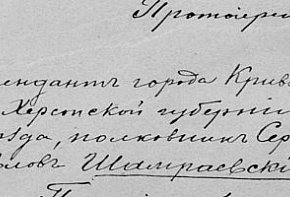 Протоіерей
ендантъ города Криво
Херсонской губерніи
ѣзда, полковникъ Сер
ловъ Шамраевскій